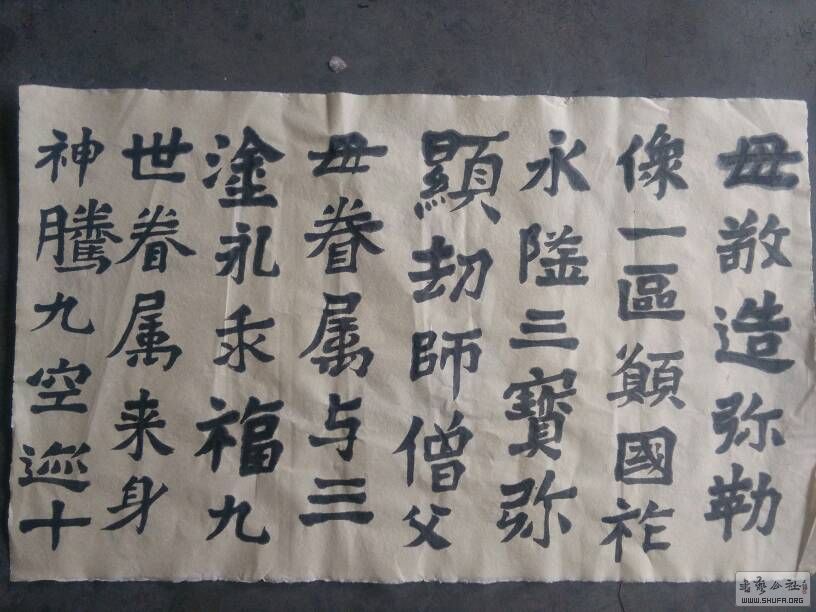 母敬造弥勒
像一區願國祚
永隆三寶弥
顯劫師僧父
母眷属与三
塗永乖福九
世眷属来身
神騰九空迹十
书艺公社
WWW.SHUFA.ORG